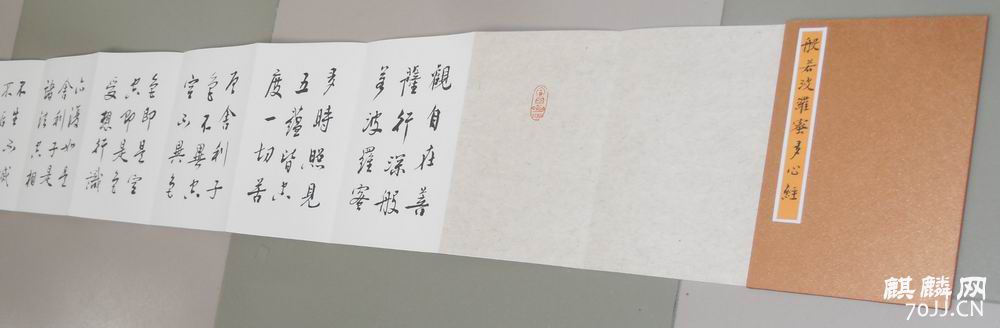 般若波羅蜜多心經
觀自在菩
薩行深般
若波羅蜜
多時照見
五蘊皆空
度一切苦
厄舍利子
色不異空
空不異色
色即是空
空即是色
受想行識
亦復如是
舍利子是
諸法空相
不生不滅
麒麟网
70JJ.CN